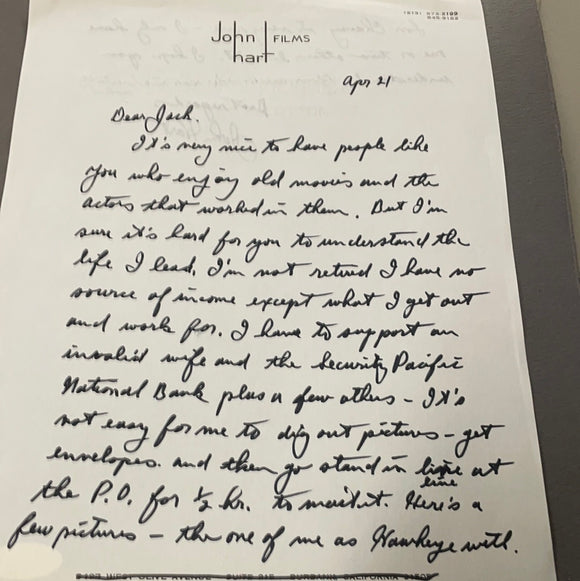 John hart FILMS
Apr 21
Dear Jack.
It's very nice to have people like
you who enjoy old movies and the
actors that worked in them. But I'm
sure it's hard for you to understand the
life I lead. I'm not retired I have no
source of income except what I get out
and work for. I have to support an
invalid wife and the Security Pacific
National Bank plus a few others - It's
not easy for me to dig out pictures - get
envelopes. and then go stand in line at
line
the P.O. for ½ hr. to mail it. Here's a
few pictures - the one of me as Hawkeye with.